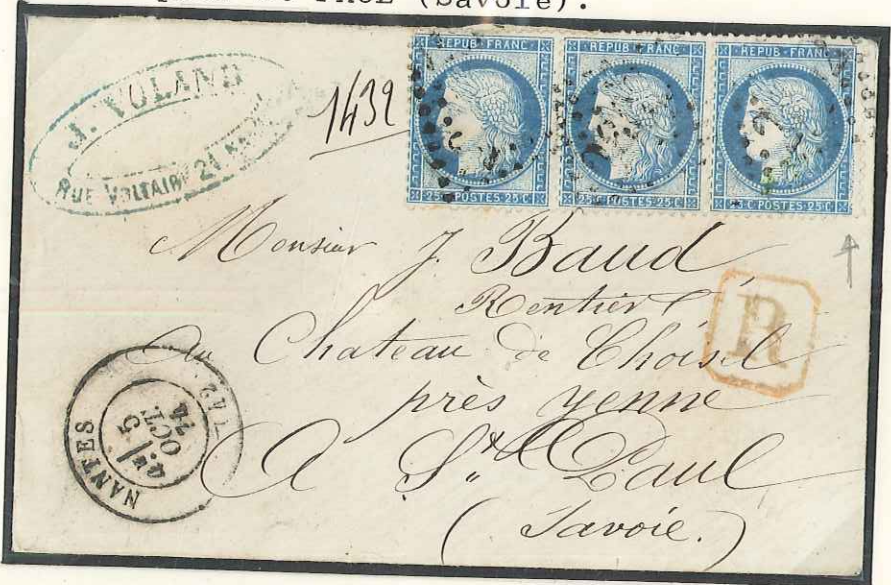 PAUL (Savoie).
J. VOLAND
RUE VOLTAIRE 21
1432
REPUB·FRANC·
25C POSTES 25C
REPUB·FRANC·
25C POSTES 25C
REPUB·FRANC·
POSTES 25C
Monsieur J. Baud
Rentier
R
Au Chateau de Choisel
près Yenne
A St Paul
(Savoie.)
NANTES
5
OCT.
74